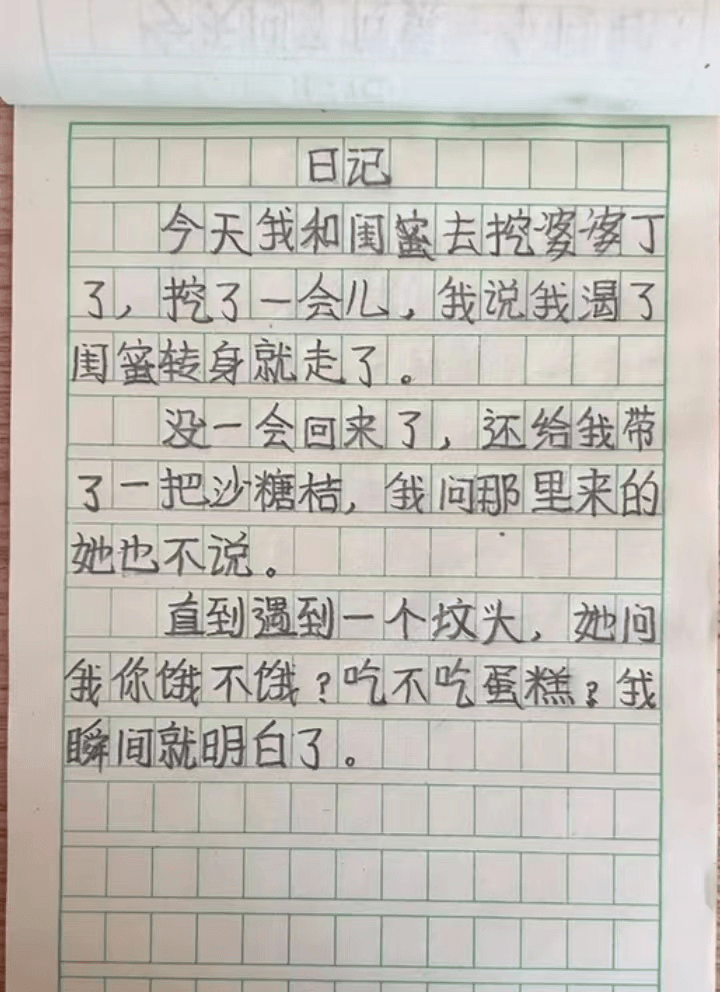 日记
今天我和闺蜜去挖婆婆丁
了，挖了一会儿，我说我渴了
闺蜜转身就走了。
没一会回来了，还给我带
了一把沙糖桔，我问那里来的
她也不说。
直到遇到一个坟头，她问
我你饿不饿？吃不吃蛋糕？我
瞬间就明白了。